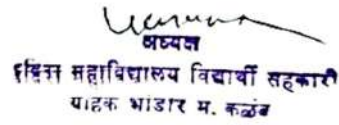 अध्यक्ष
महाविद्यालय विद्यार्थी सहकारी
ग्राहक भांडार म. कळंब